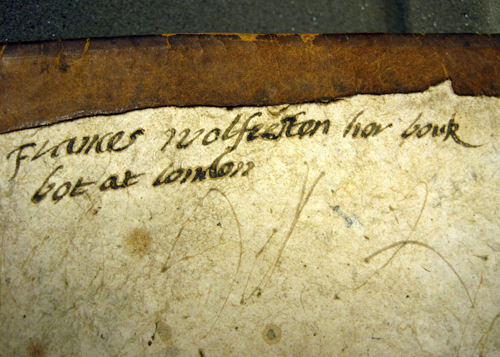 Frances wolfreston hor bouk
bot at london